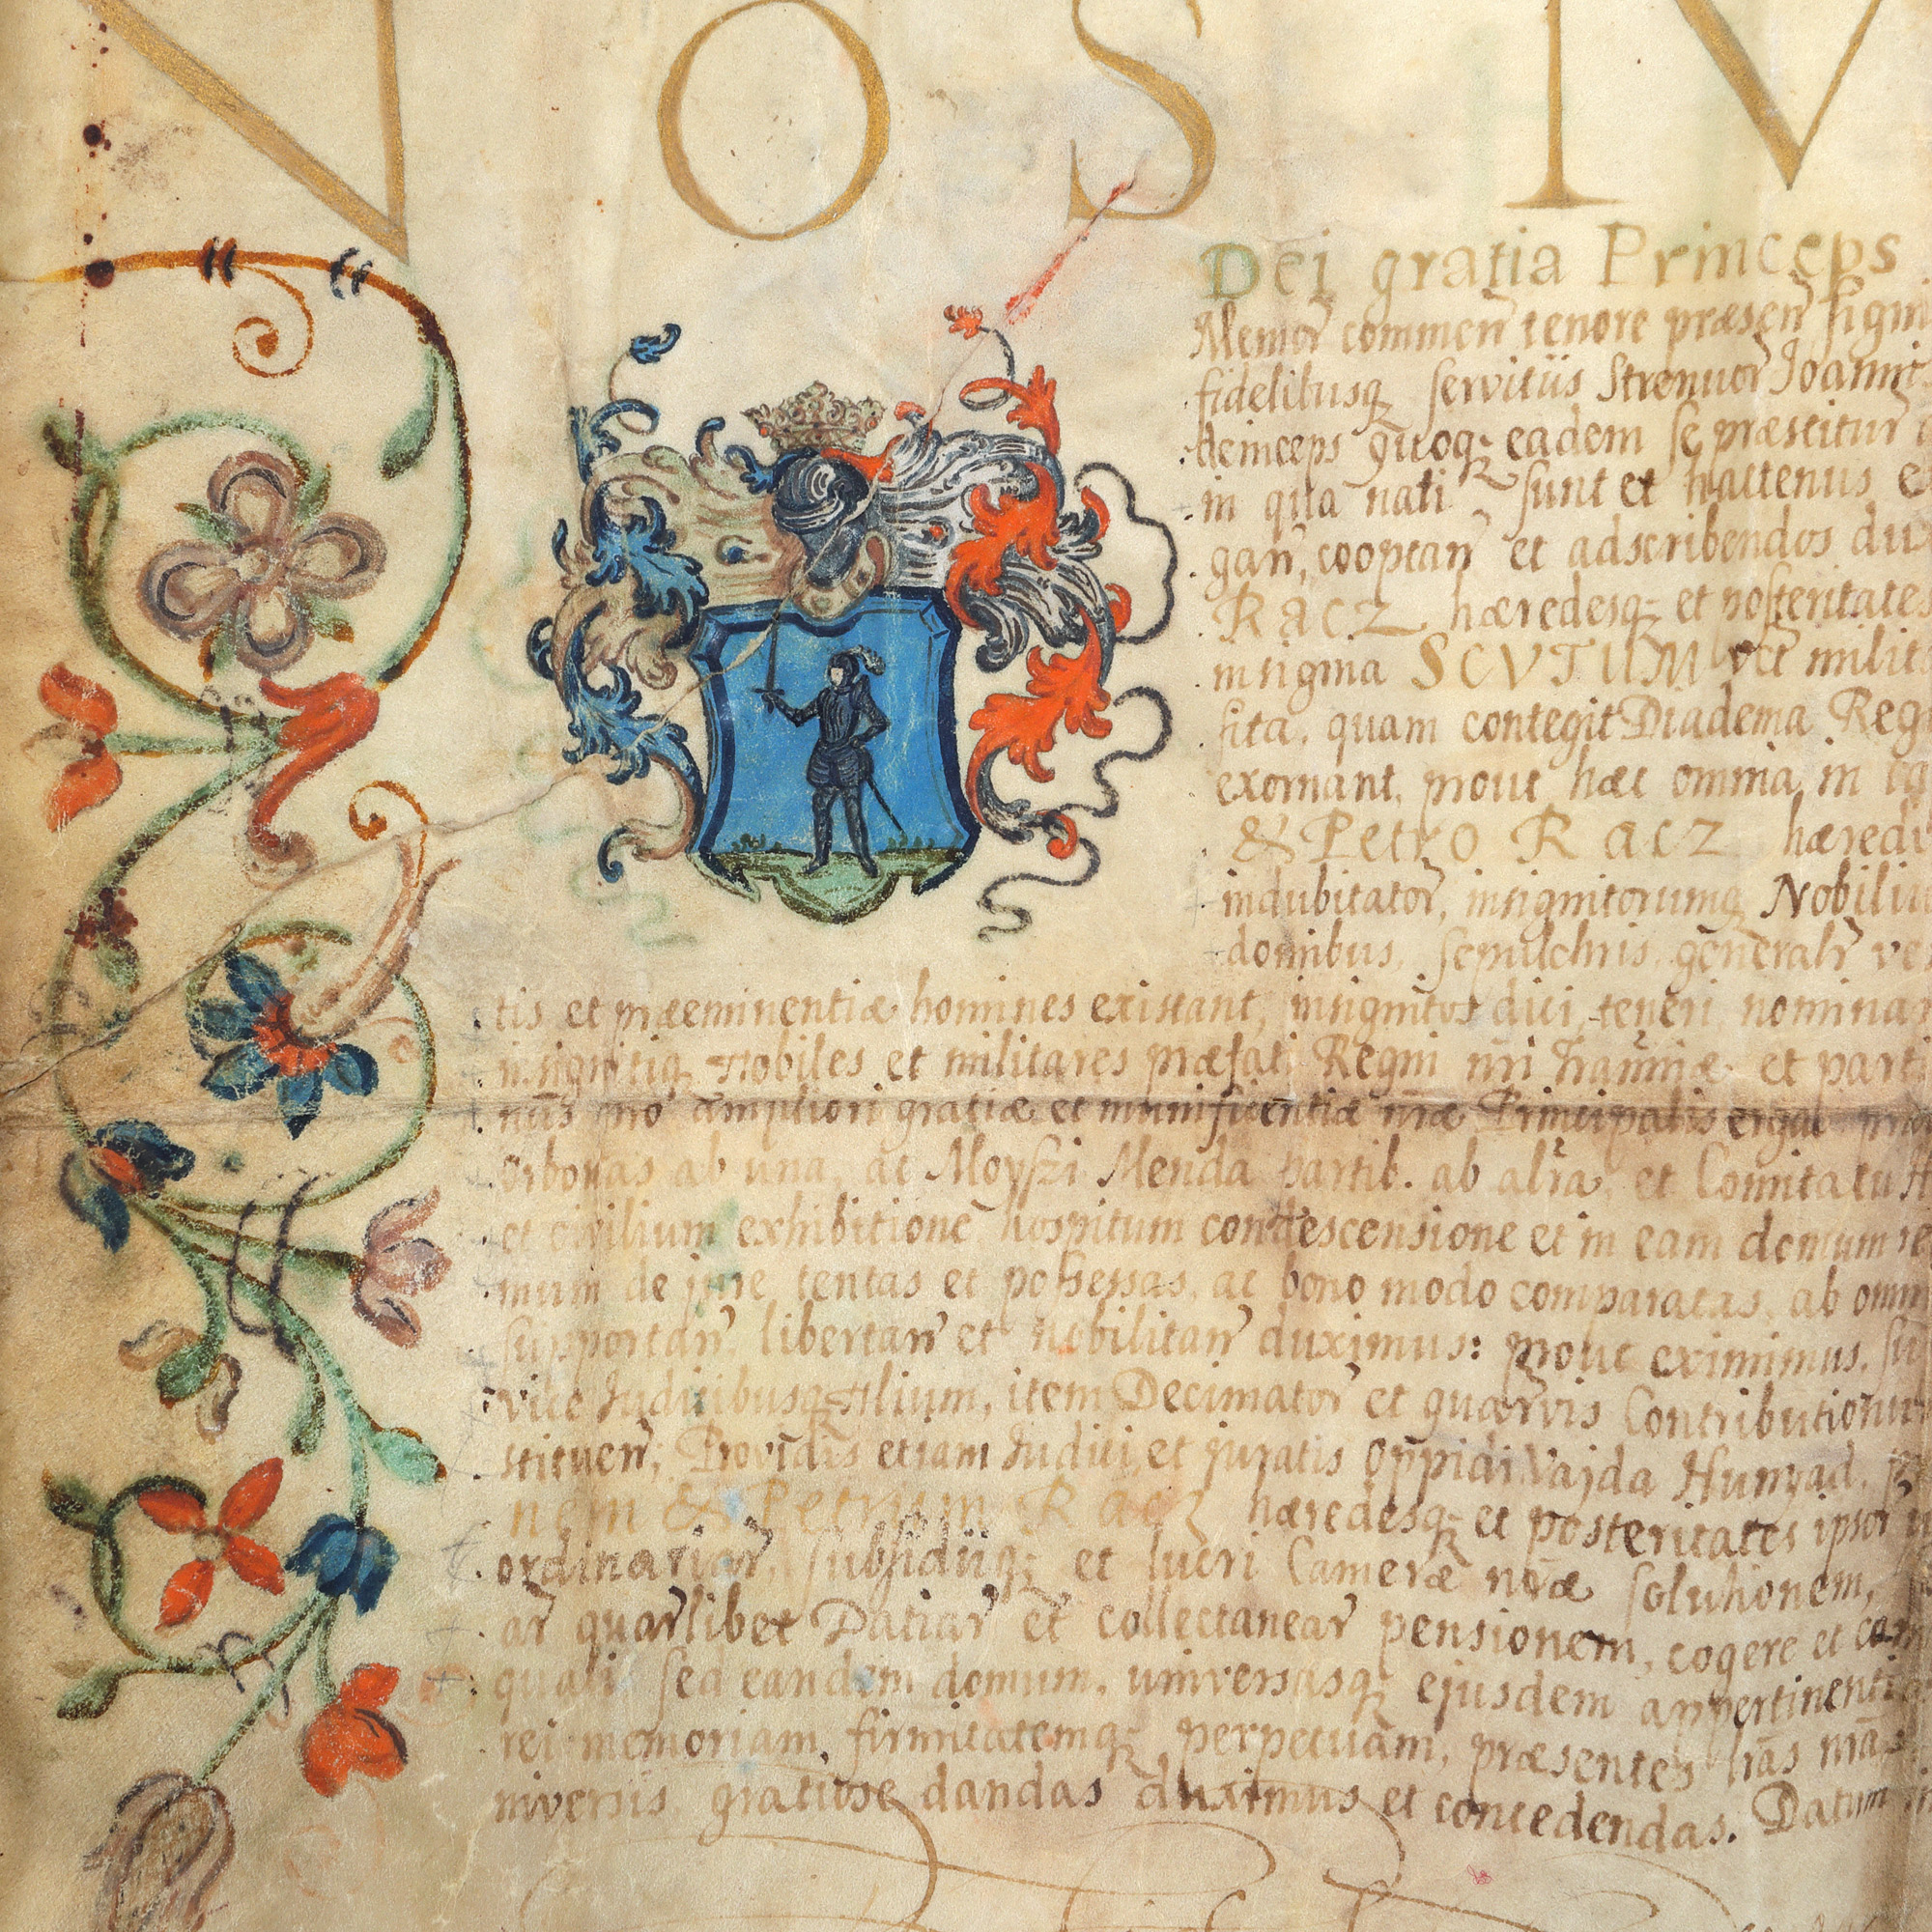 NOS IV
Dei gratia Princeps
Memor commen tenore præsen signi
fidelibusq servitiis Strenuor Joannis
deinceps quoq eadem se præstitur
in qua nati sunt et hactenus e
gan, cooptan et adscribendos du
RACZ hæredesq et posteritates
insignia SCVTUM vct milit
sita, quam contegit Diadema Reg
exornant, prout hæc omnia in
& Petro Racz hæredi
indubitator, insignitorumq Nobiliu
domibus, sepulchris generalr ve
tis et præeminentiæ homines existant, insignitos dici, teneri nomina
insignitiq Nobiles et militares præfati Regni nri Tranniæ et parti
pro ampliori gratiæ et munificentiæ nræ Principalis erga
orbonas ab una, ac Moyszi Menda partib. ab alra, et Comitatu
et civilium exhibitione hospitum condescensione et in eam domum
mum de jure tentas et possessas, ac bono modo comparatas, ab omn
supportan, libertan et nobilitan duximus: prout eximimus, su
vice Judicibusq Nlium, item Decimator et quarvis Contributionu
stituen; Providis etiam Judici et juratis Oppidi Vajda Hunyad,
nem & Petrum Racz hæredesq et posteritates ipsor
ordinariar, subsidiiq; et lucri Cameræ nræ solutionem,
ar quarlibet Datiar et collectanear pensionem, cogere et
quali sed eandem domum, universasq ejusdem appertinenti
rei memoriam, firmitatemq perpetuam, præsentes lras nras
niversis gratiose dandas duximus et concedendas. Datum